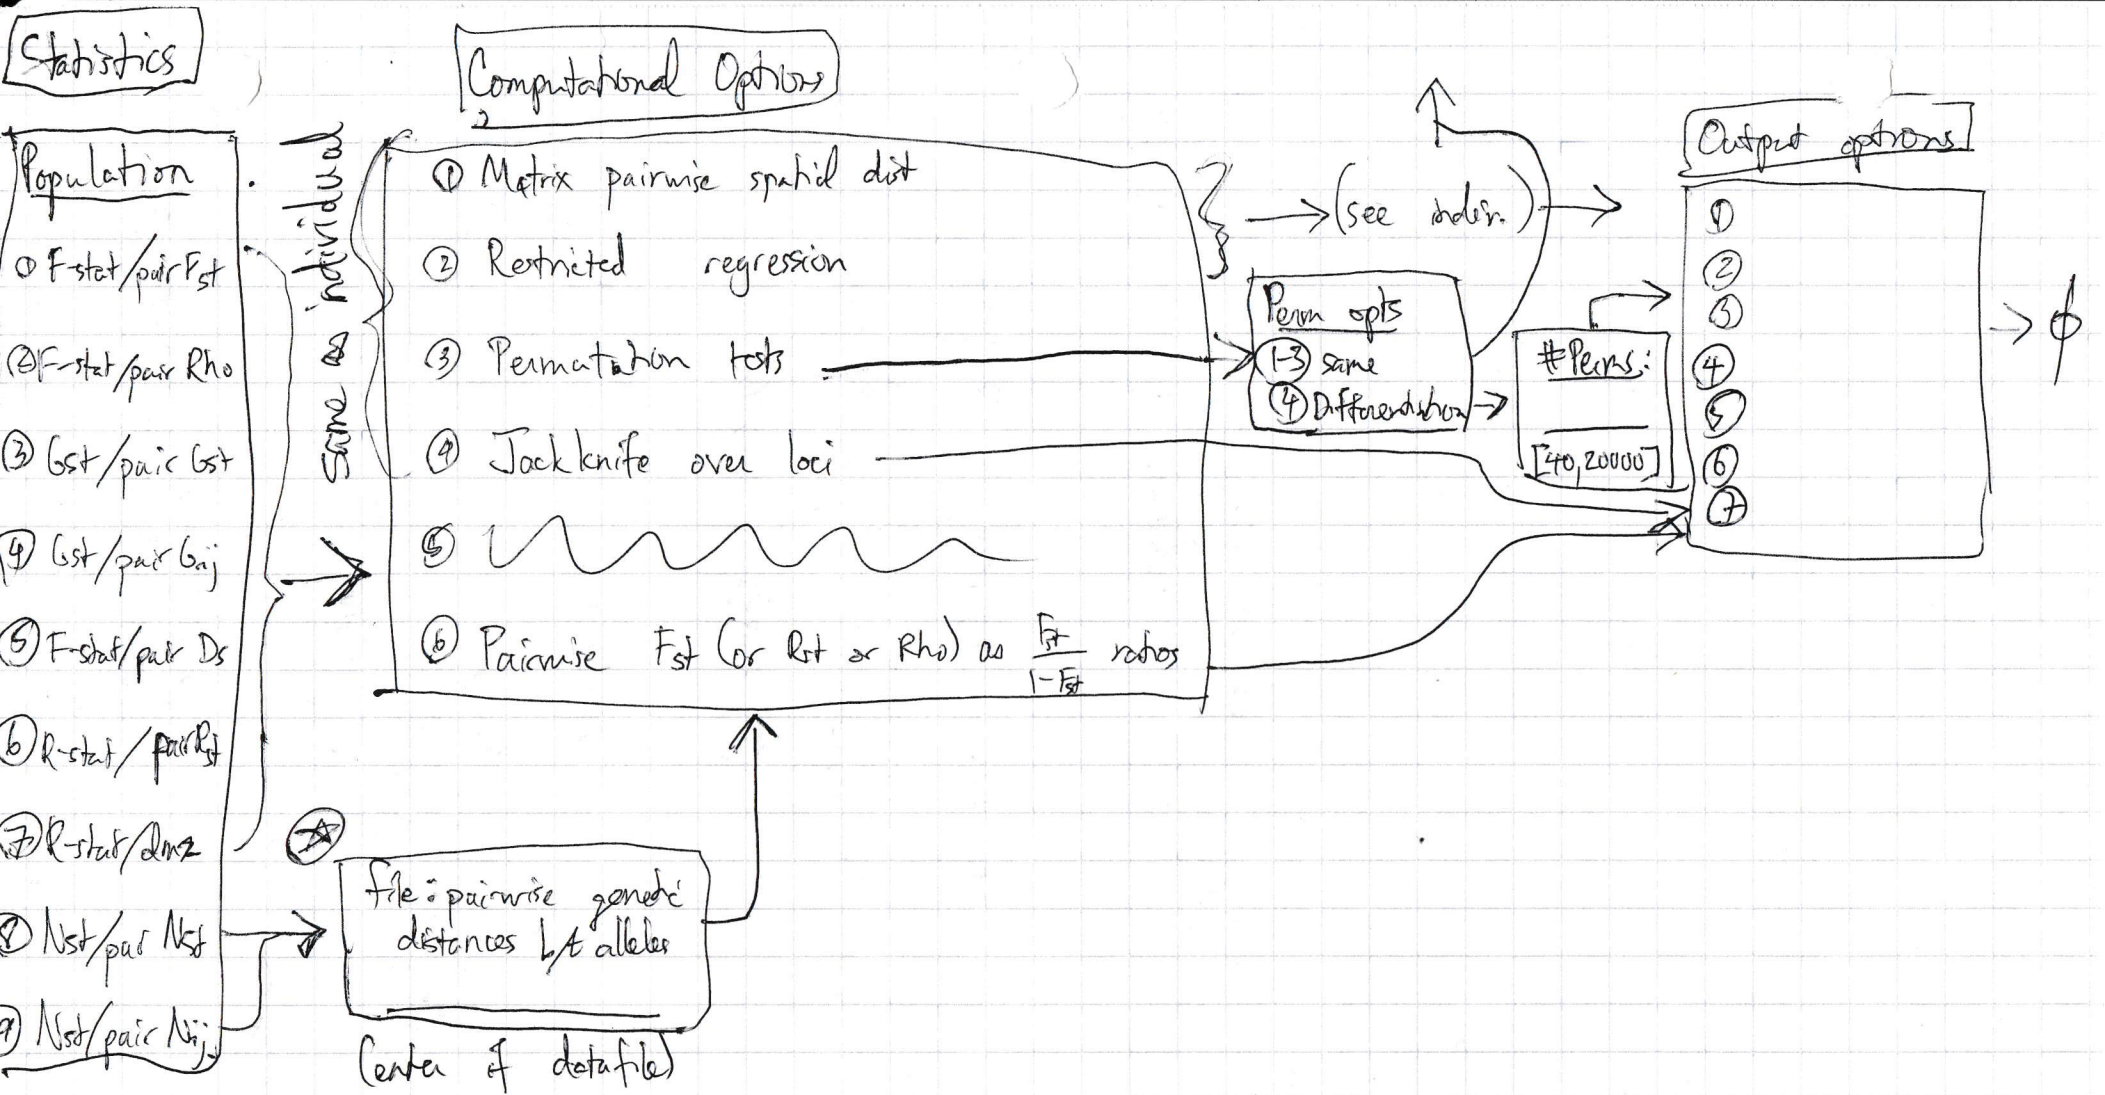 Statistics
Population
① F-stat/pair Fst
② F-stat/pair Rho
③ Gst/pair Gst
④ Gst/pair Gij
⑤ F-stat/pair Ds
⑥ R-stat/pair Rst
⑦ R-stat/dm2
⑧ Nst/pair Nst
⑨ Nst/pair Nij
same as individual
Computational Options
① Matrix pairwise spatial dist
② Restricted regression
③ Permutation tests
④ Jackknife over loci
⑤
⑥ Pairwise Fst (or Rst or Rho) as Fst/1-Fst ratios
file: pairwise genetic
distances b/t alleles
(enter if datafile)
(see indiv.)
Perm opts
①-③ same
④ Differentiation
#Perms:
[40,20000]
Output options
①
②
③
④
⑤
⑥
⑦
→ φ